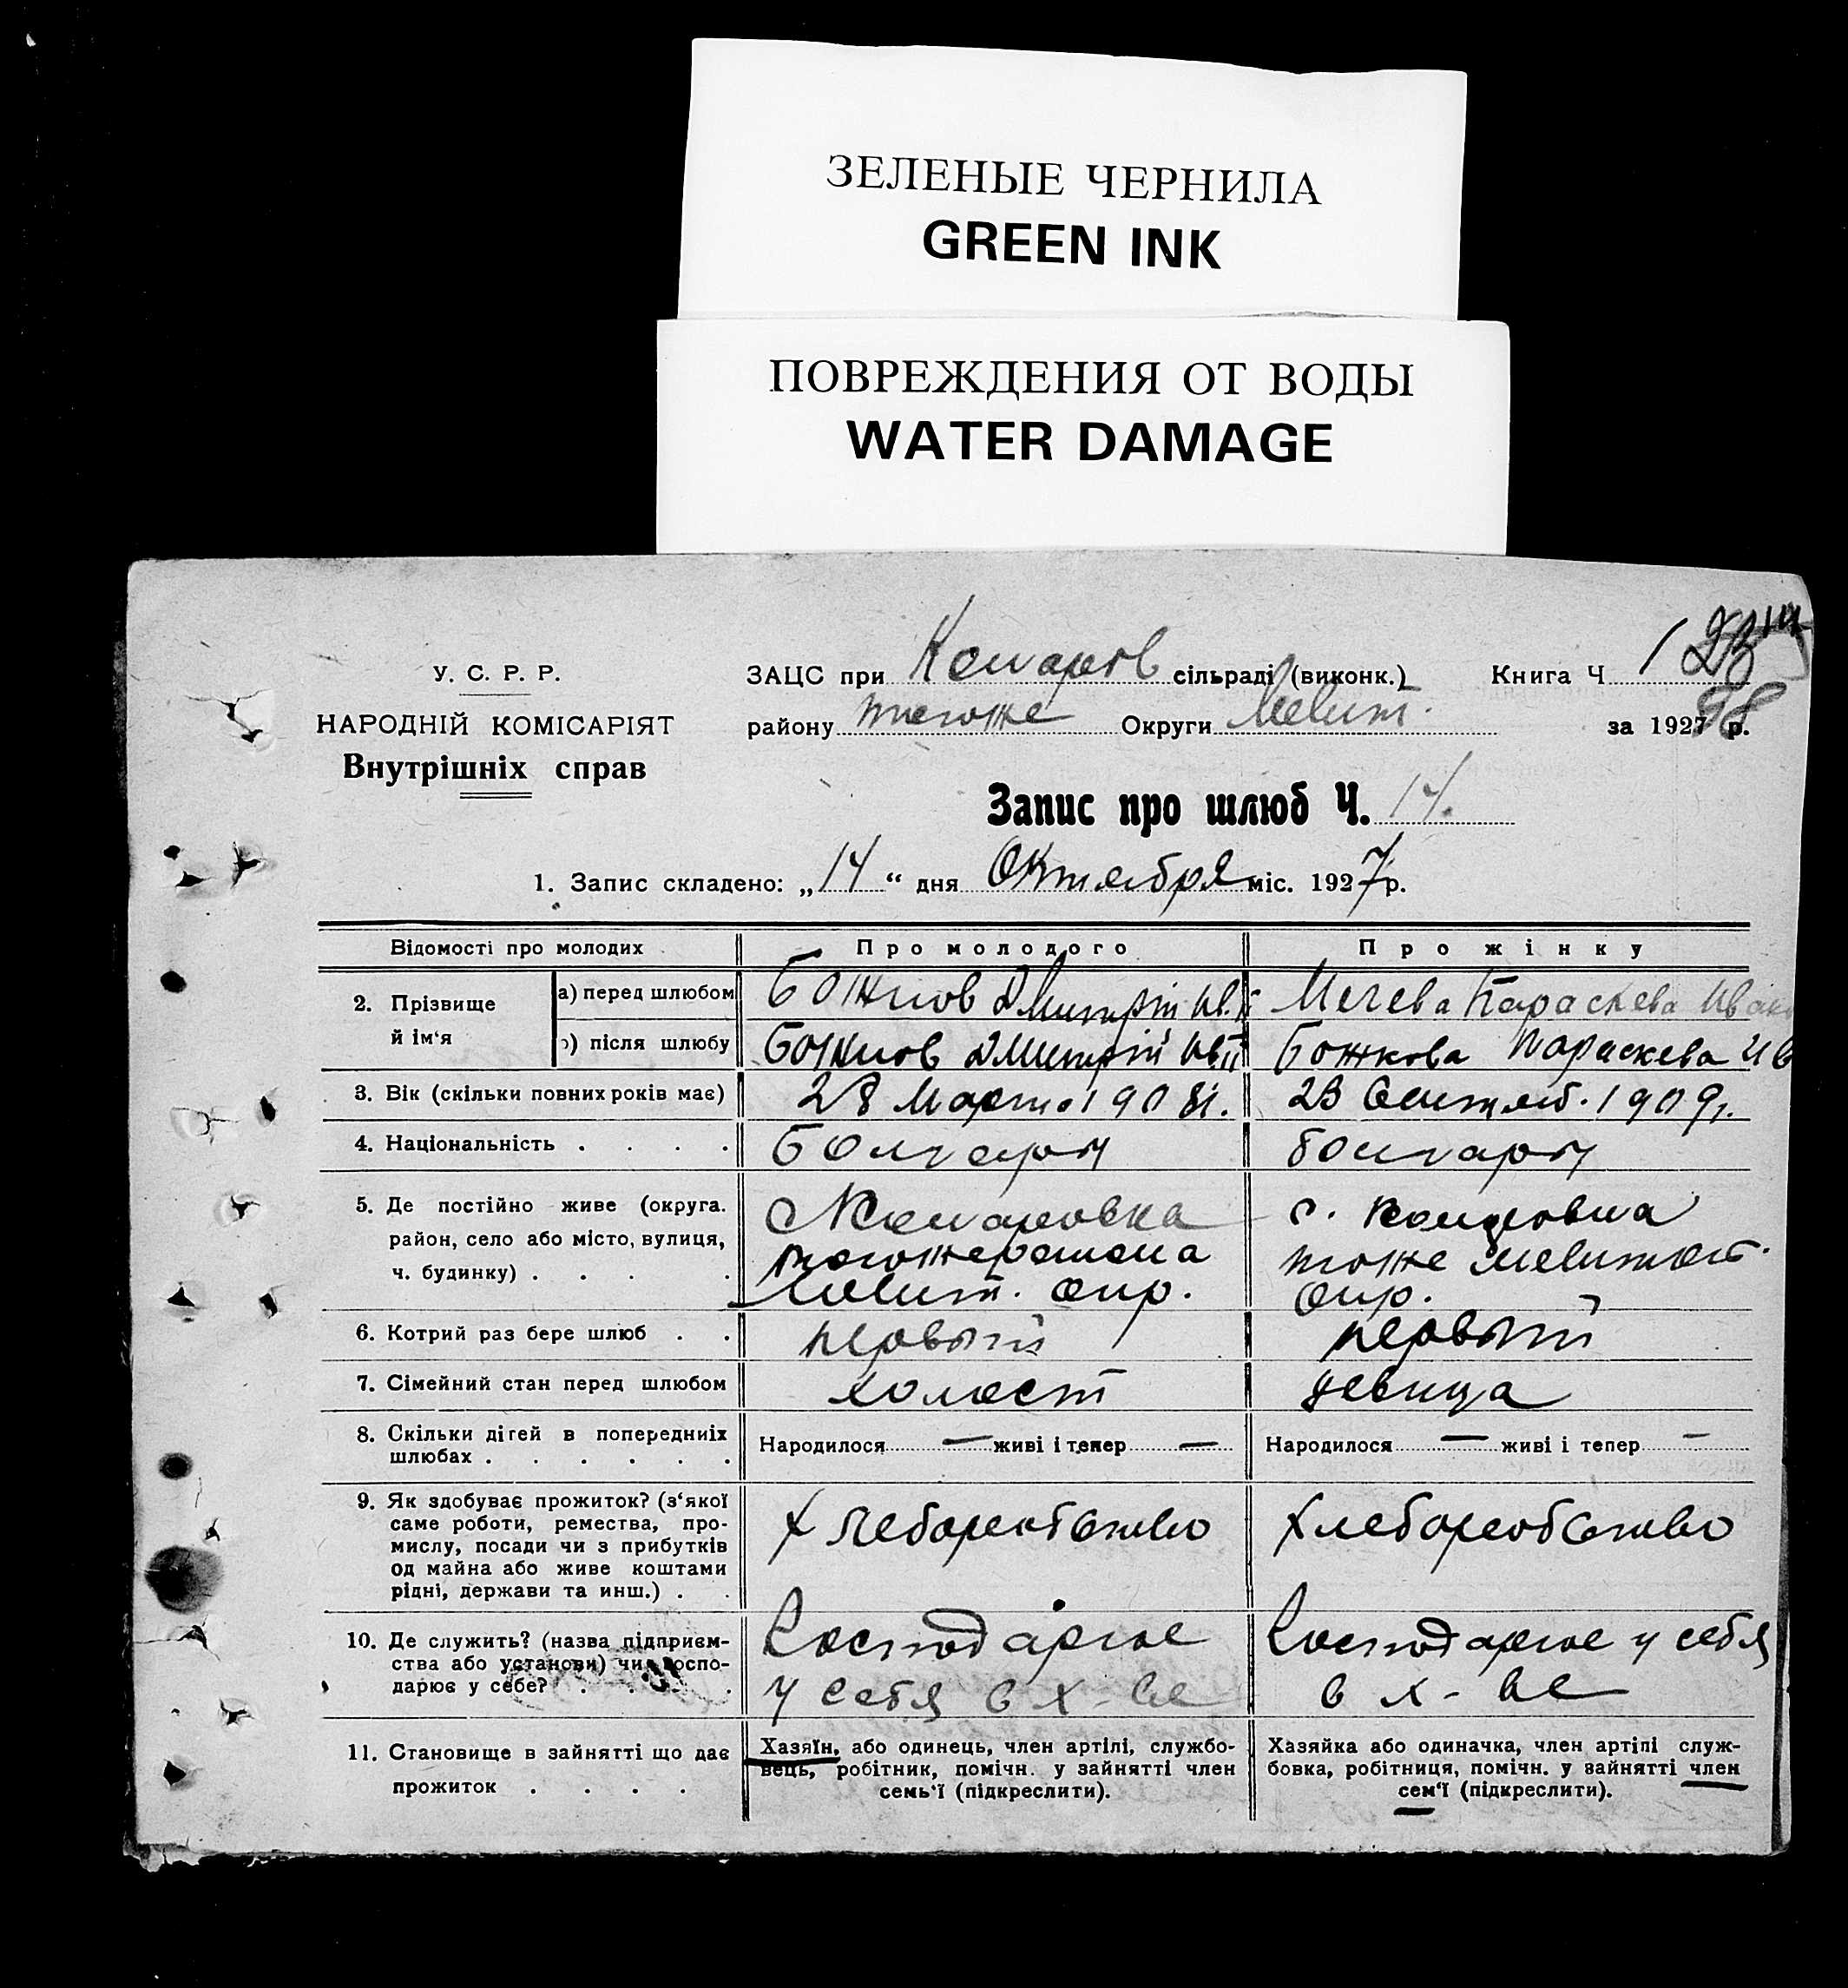 ЗЕЛЕНЫЕ ЧЕРНИЛА
GREEN INK
ПОВРЕЖДЕНИЯ ОТ ВОДЫ
WATER DAMAGE
У. С. Р. Р.
НАРОДНІЙ КОМІСАРІЯТ
Внутрішніх справ
ЗАЦС при Комаров сільраді (виконк.) Книга Ч 1
району тогоже Округи Мелит. за 1927 р.
Запис про шлюб Ч. 14.
1. Запис складено: „14“ дня Октября міс. 1927 р.
Відомості про молодих Про молодого Про жінку
2. Прізвище й ім'я
а) перед шлюбом Божков Дмитрій Ив. Мечева Параскева Иван
б) після шлюбу Божков Дмитрій Ив. Божкова Параскева Ив
3. Вік (скільки повних років має) 28 Марта 1908 г. 23 Сентяб. 1909 г.
4. Національність . . . . Болгары болгары
5. Де постійно живе (округа. район, село або місто, вулиця, ч. будинку) . . .
с Комаровка
тогоже района
Мелит. окр.
с.
тоже Мелитоп.
окр.
6. Котрий раз бере шлюб . . первый первый
7. Сімейний стан перед шлюбом холост девица
8. Скільки дітей в попередніх шлюбах . . . . . .
Народилося — живі і тепер — Народилося — живі і тепер —
9. Як здобуває прожиток? (з'якої
саме роботи, ремества, про-
мислу, посади чи з прибутків
од майна або живе коштами
рідні, держави та инш.) . .
Хлеборобство Хлеборобство
10. Де служить? (назва підприєм-
ства або установи) чи госпо-
дарює у себе? . . . .
Господарює
у себя в х-ве
Господарює у себя
в х-ве
11. Становище в зайнятті що дає
прожиток . . . .
Хазяїн, або одинець, член артілі, службо-
вець, робітник, помічн. у зайнятті член
семь'ї (підкреслити).
Хазяйка або одиначка, член артілі служ-
бовка, робітниця, помічн. у зайнятті член
сем'ї (підкреслити).